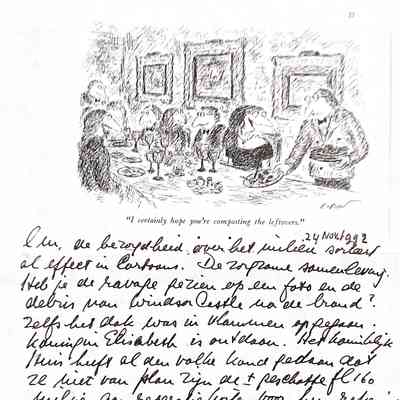 "I certainly hope you're composting the leftovers."
24 Nov 1992
Lm, de bezorgdheid over het milieu sorteert
al effect in Cartoons. De zorgzame samenleving.
Heb je de ravage gezien op een foto en de
debris van Windsor Castle na de brand?
Zelfs het dak was in vlammen opgegaan.
Koningin Elisabeth is ontdaan. Het Koninklijk
Huis heeft al den volke kond gedaan dat
ze niet van plan zijn de ± geschatte fl 160